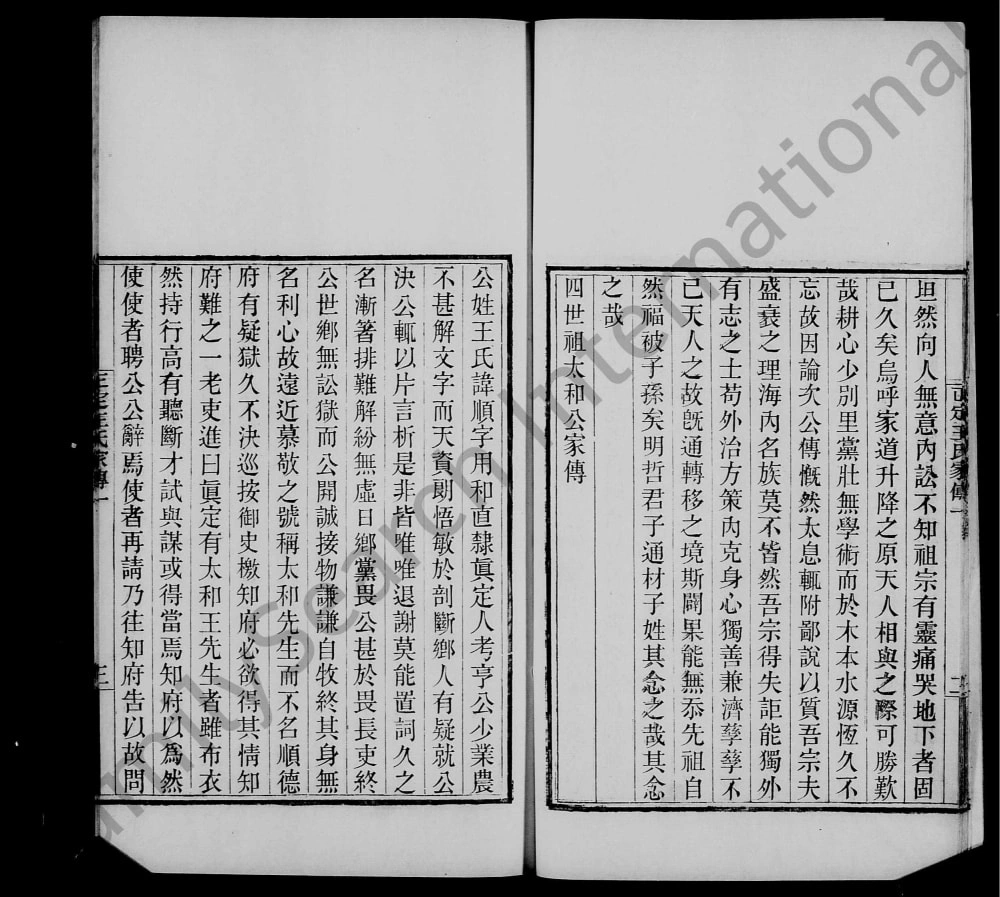 坦然向人無意內訟不知祖宗有靈痛哭地下者固
已久矣烏呼家道升降之原天人相與之際可勝歎
哉耕心少別里黨壯無學術而於木本水源恆久不
忘故因論次公傳慨然太息輒附鄙說以質吾宗夫
盛衰之理海內名族莫不皆然吾宗得失詎能獨外
有志之士苟外治方策內克身心獨善兼濟孳孳不
已天人之故旣通轉移之境斯闢果能無忝先祖自
然福被子孫矣明哲君子通材子姓其念之哉其念
之哉
四世祖太和公家傳
公姓王氏諱順字用和直隸眞定人考亨公少業農
不甚解文字而天資朗悟敏於剖斷鄉人有疑就公
決公輒以片言析是非皆唯唯退謝莫能置詞久之
名漸著排難解紛無虛日鄉黨畏公甚於畏長吏終
公世鄉無訟獄而公開誠接物謙謙自牧終其身無
名利心故遠近慕敬之號稱太和先生而不名順德
府有疑獄久不決巡按御史檄知府必欲得其情知
府難之一老吏進曰眞定有太和王先生者雖布衣
然持行高有聽斷才試與謀或得當焉知府以爲然
使使者聘公公辭焉使者再請乃往知府告以故問
王氏家傳一
三
FamilySearch International